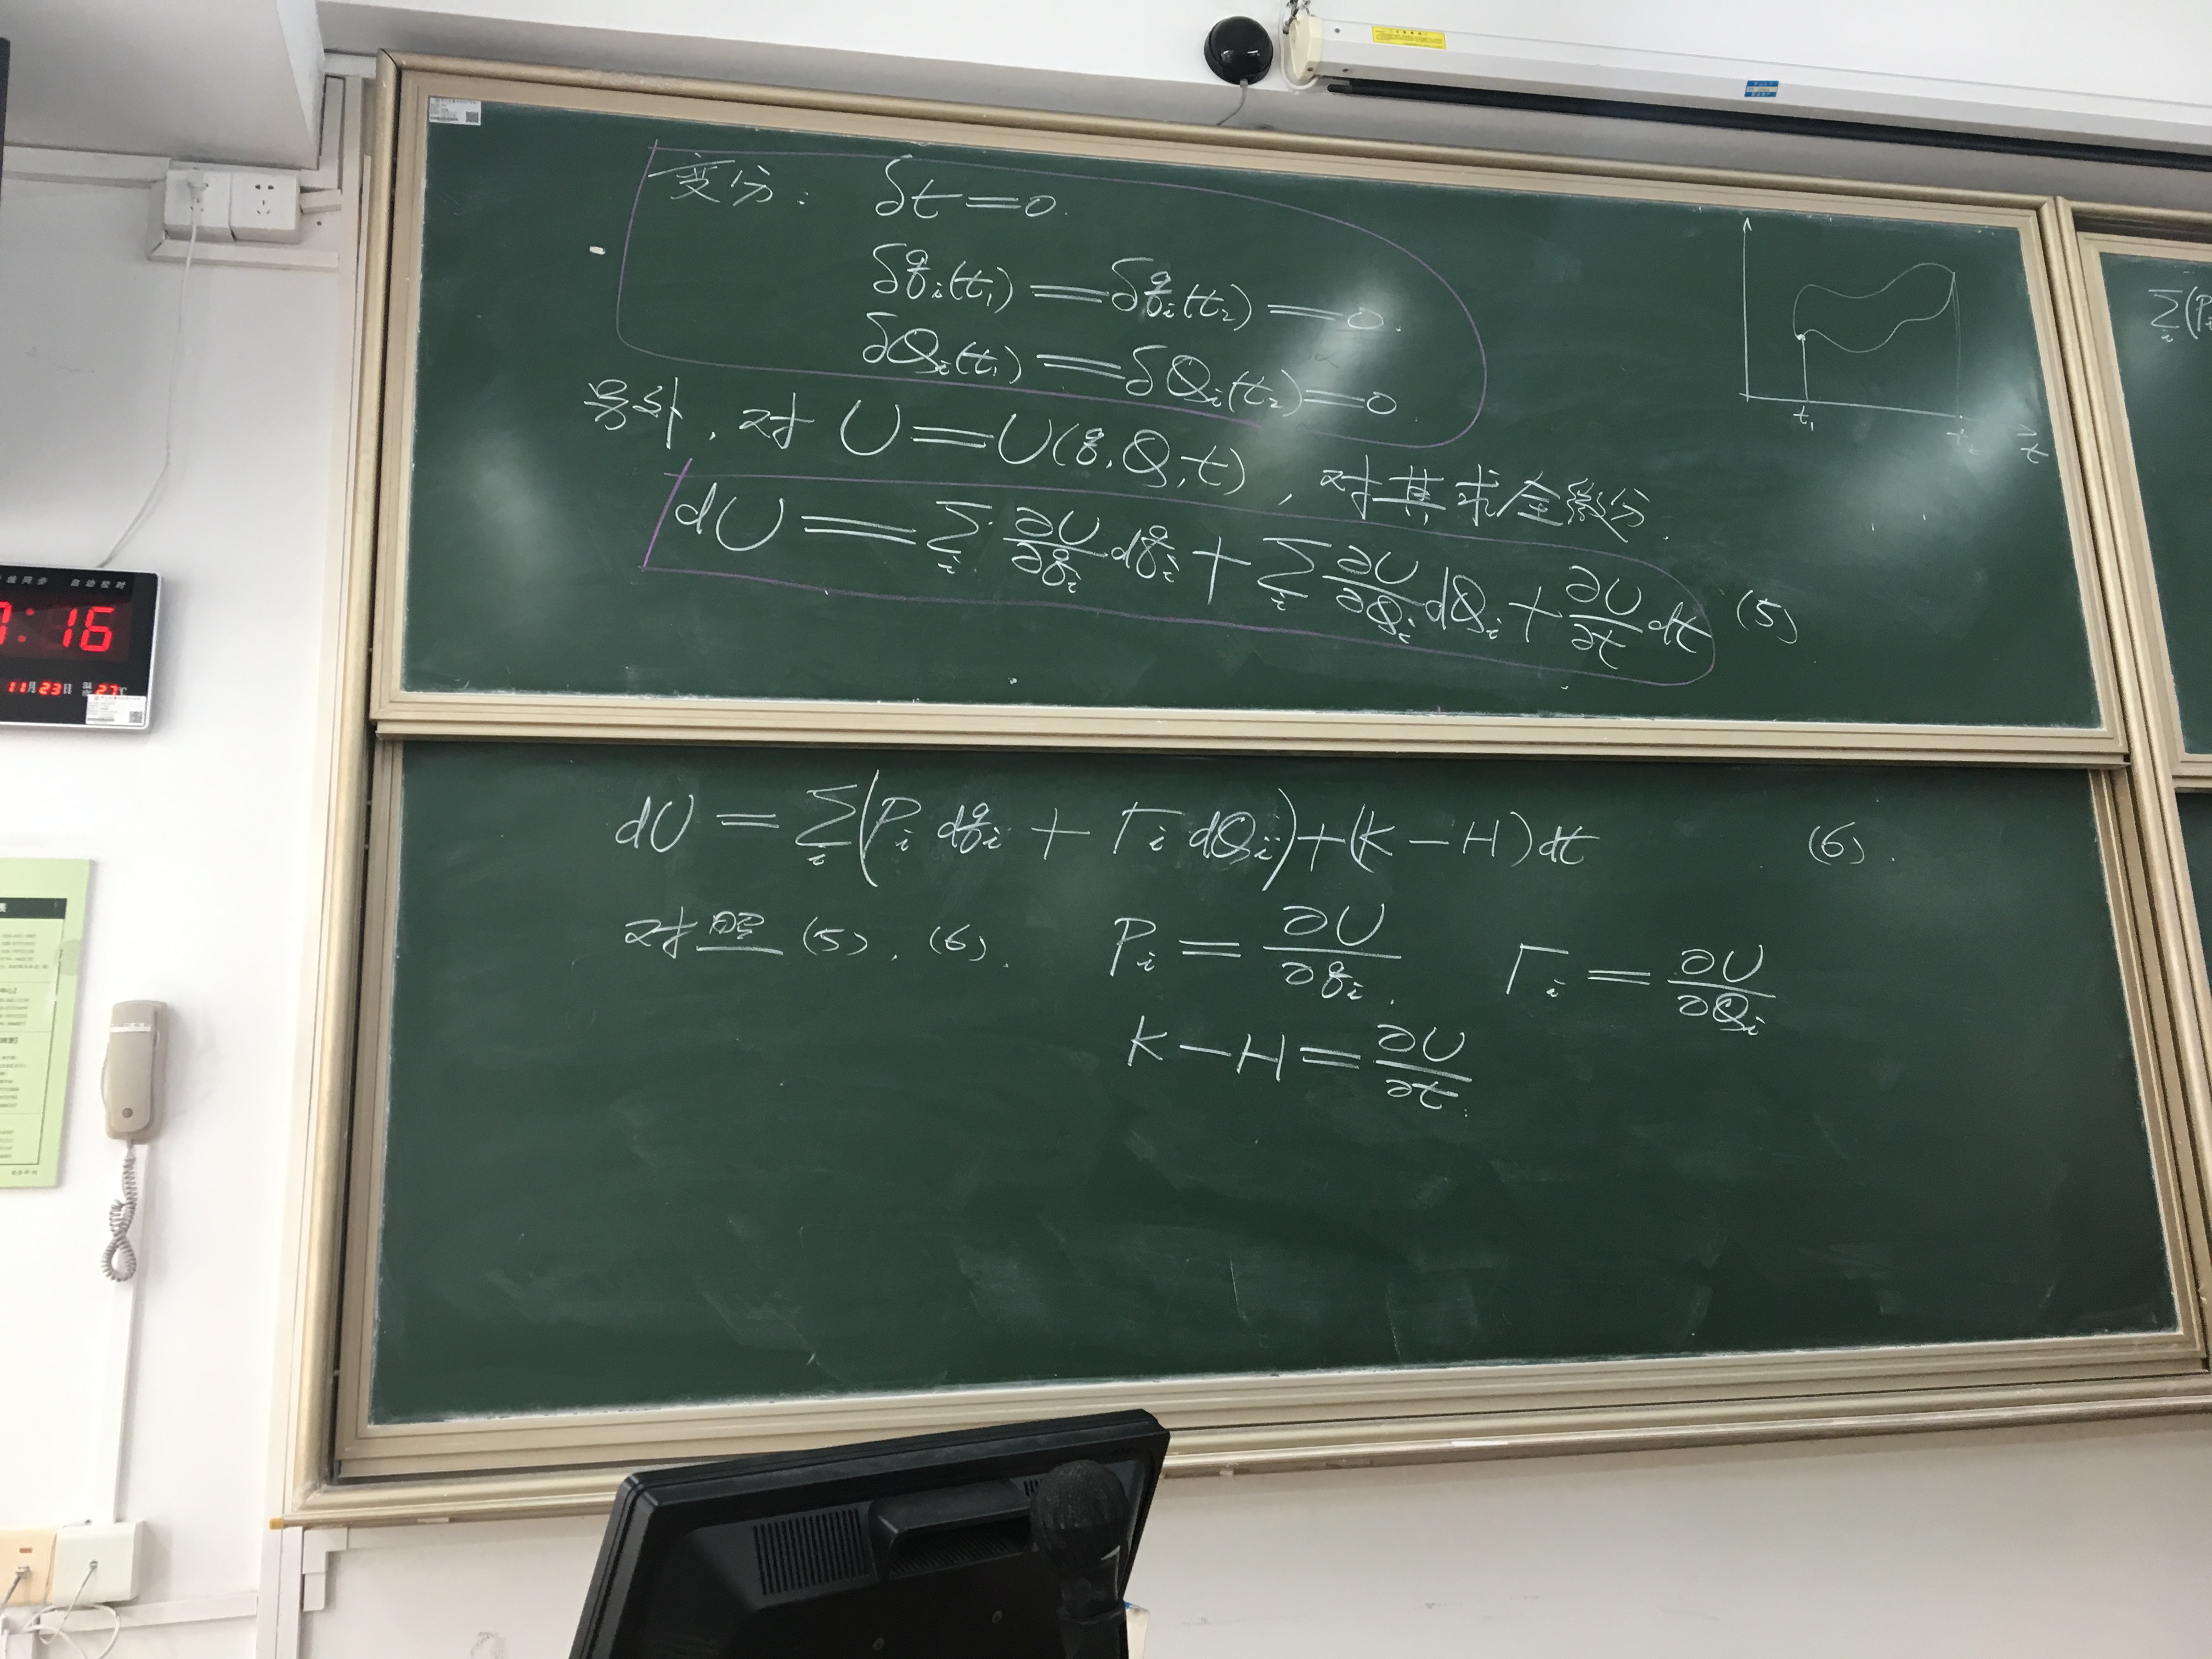 变分: δt=0.
δq_i(t_1)=δq_i(t_2)=0.
δQ_i(t_1)=δQ_i(t_2)=0.
另外, 对 U=U(q,Q,t), 对其求全微分.
dU=∑_i ∂U/∂q_i dq_i+∑_i ∂U/∂Q_i dQ_i+∂U/∂t dt (5)
t_1 t_2 t
∑_i(P
dU=∑_i(P_i dq_i+Γ_i dQ_i)+(K-H)dt (6).
对照 (5), (6). P_i=∂U/∂q_i. Γ_i=∂U/∂Q_i
K-H=∂U/∂t.
自动校时
:16
11月23日 温度 27℃